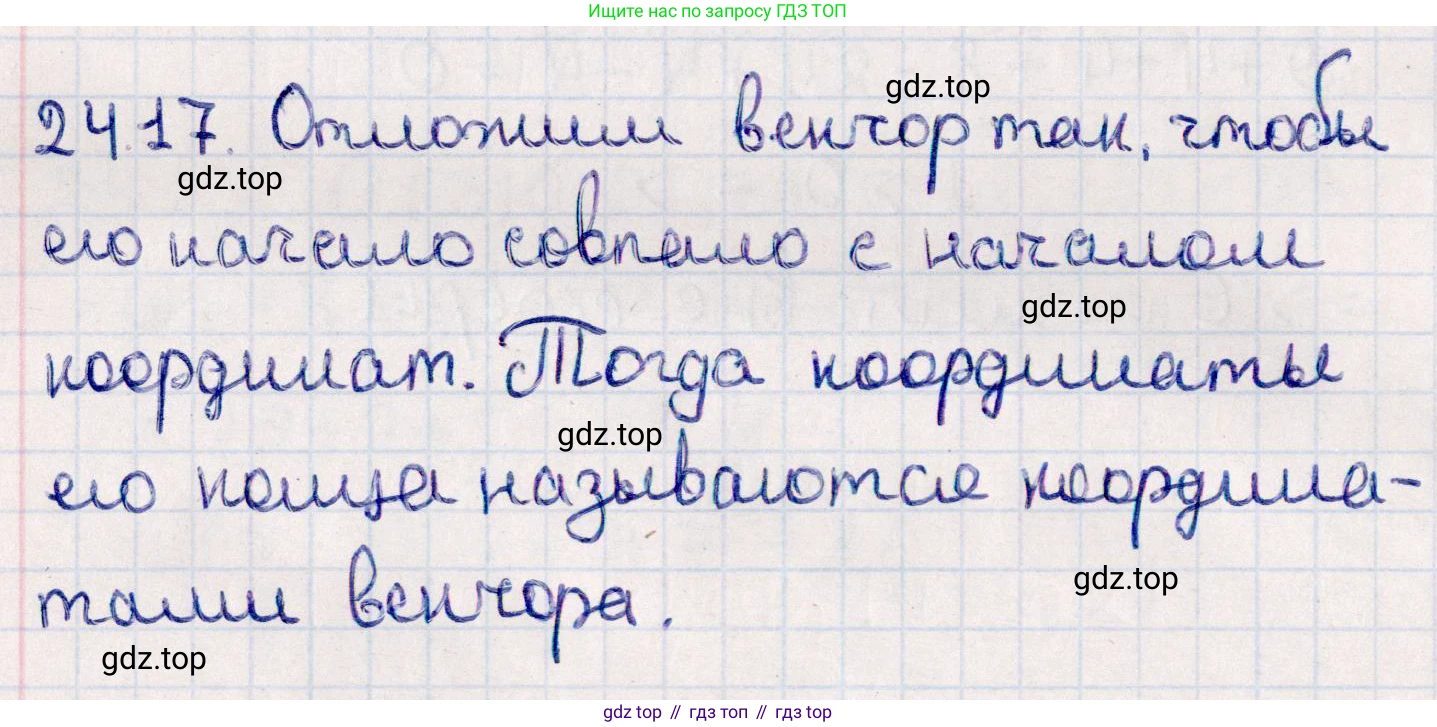 Ищите нас по запросу ГДЗ ТОП
gdz.top
24.17. Отложим вектор так, чтобы
gdz.top
его начало совпало с началом
gdz.top
координат. Тогда координаты
gdz.top
его конца называются координа-
gdz.top
тами вектора.
gdz.top
gdz top // гдз топ // гдз top